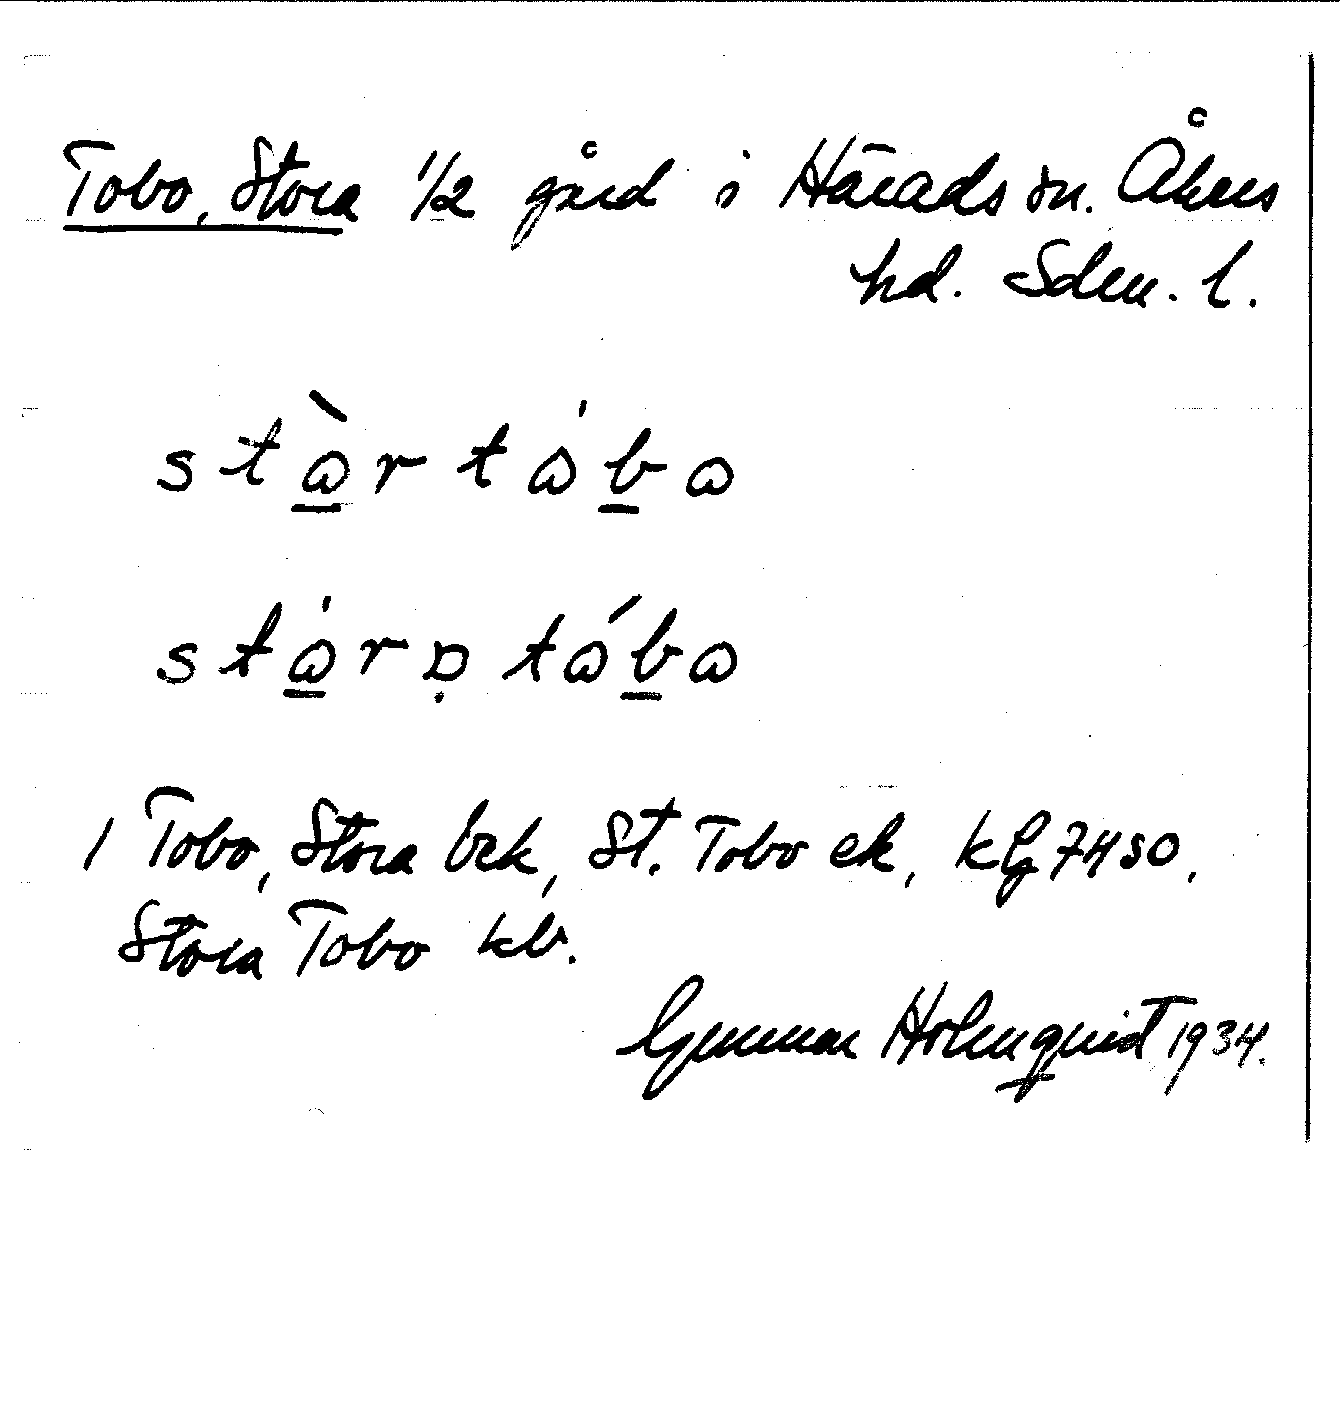 Tobo, Stora 1/2 gård i Härads sn. Åkers
hd. Sdm. l.
1 Tobo, Stora bzk, St. Tobo ek, kbg 7450,
Stora Tobo kb.
Gunnar Holmquist 1934.